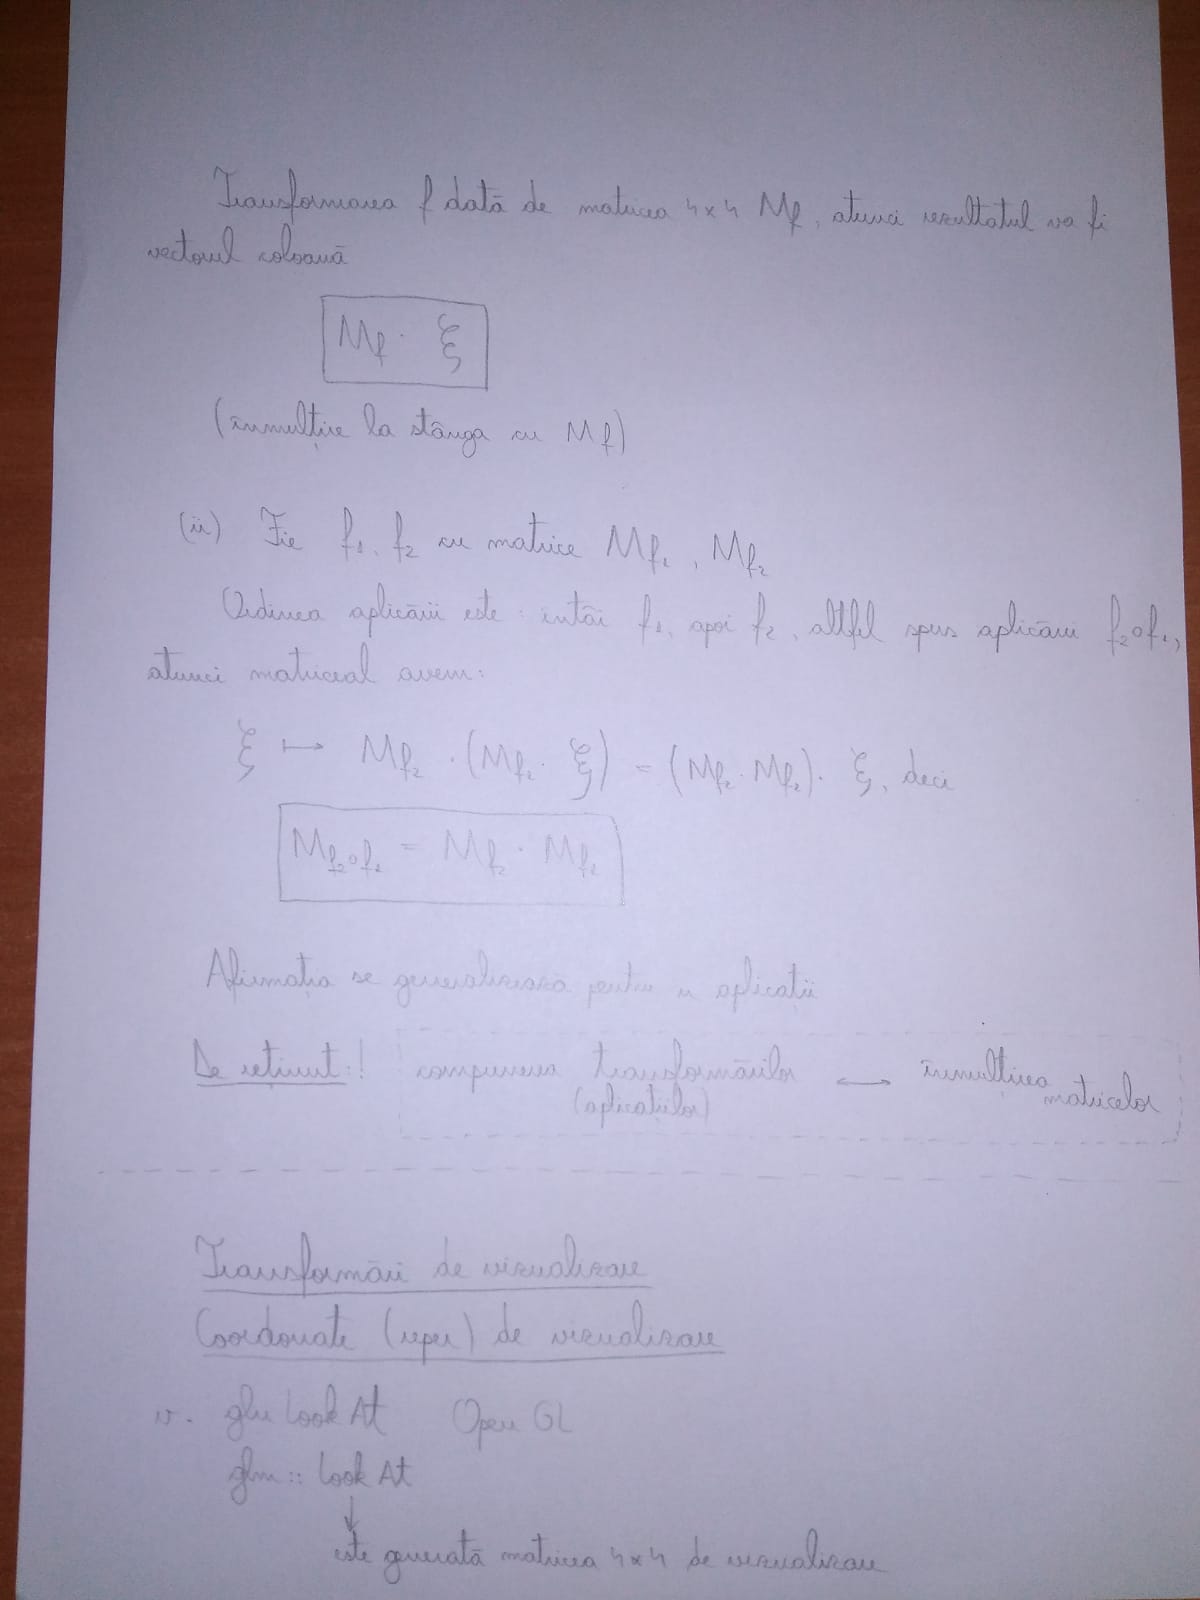 Transformarea f dată de matricea 4x4 Mf, atunci rezultatul va fi
vectorul coloană
Mf · ξ
(înmulțire la stânga cu Mf)
(ii) Fie f1, f2 cu matrice Mf1, Mf2
Ordinea aplicării este: întâi f1, apoi f2, altfel spus aplicării f2∘f1,
atunci matriceal avem:
ξ ↦ Mf2 · (Mf1 · ξ) = (Mf2 · Mf1) · ξ, deci
Mf2∘f1 = Mf2 · Mf1
Afirmația se generalizează pentru n aplicații
De reținut:! compunerea transformărilor ⟷ înmulțirea
(aplicațiilor) matricelor
Transformări de vizualizare
Coordonate (reper) de vizualizare
v. glu Look At Open GL
glm :: Look At
↓
este generată matricea 4x4 de vizualizare